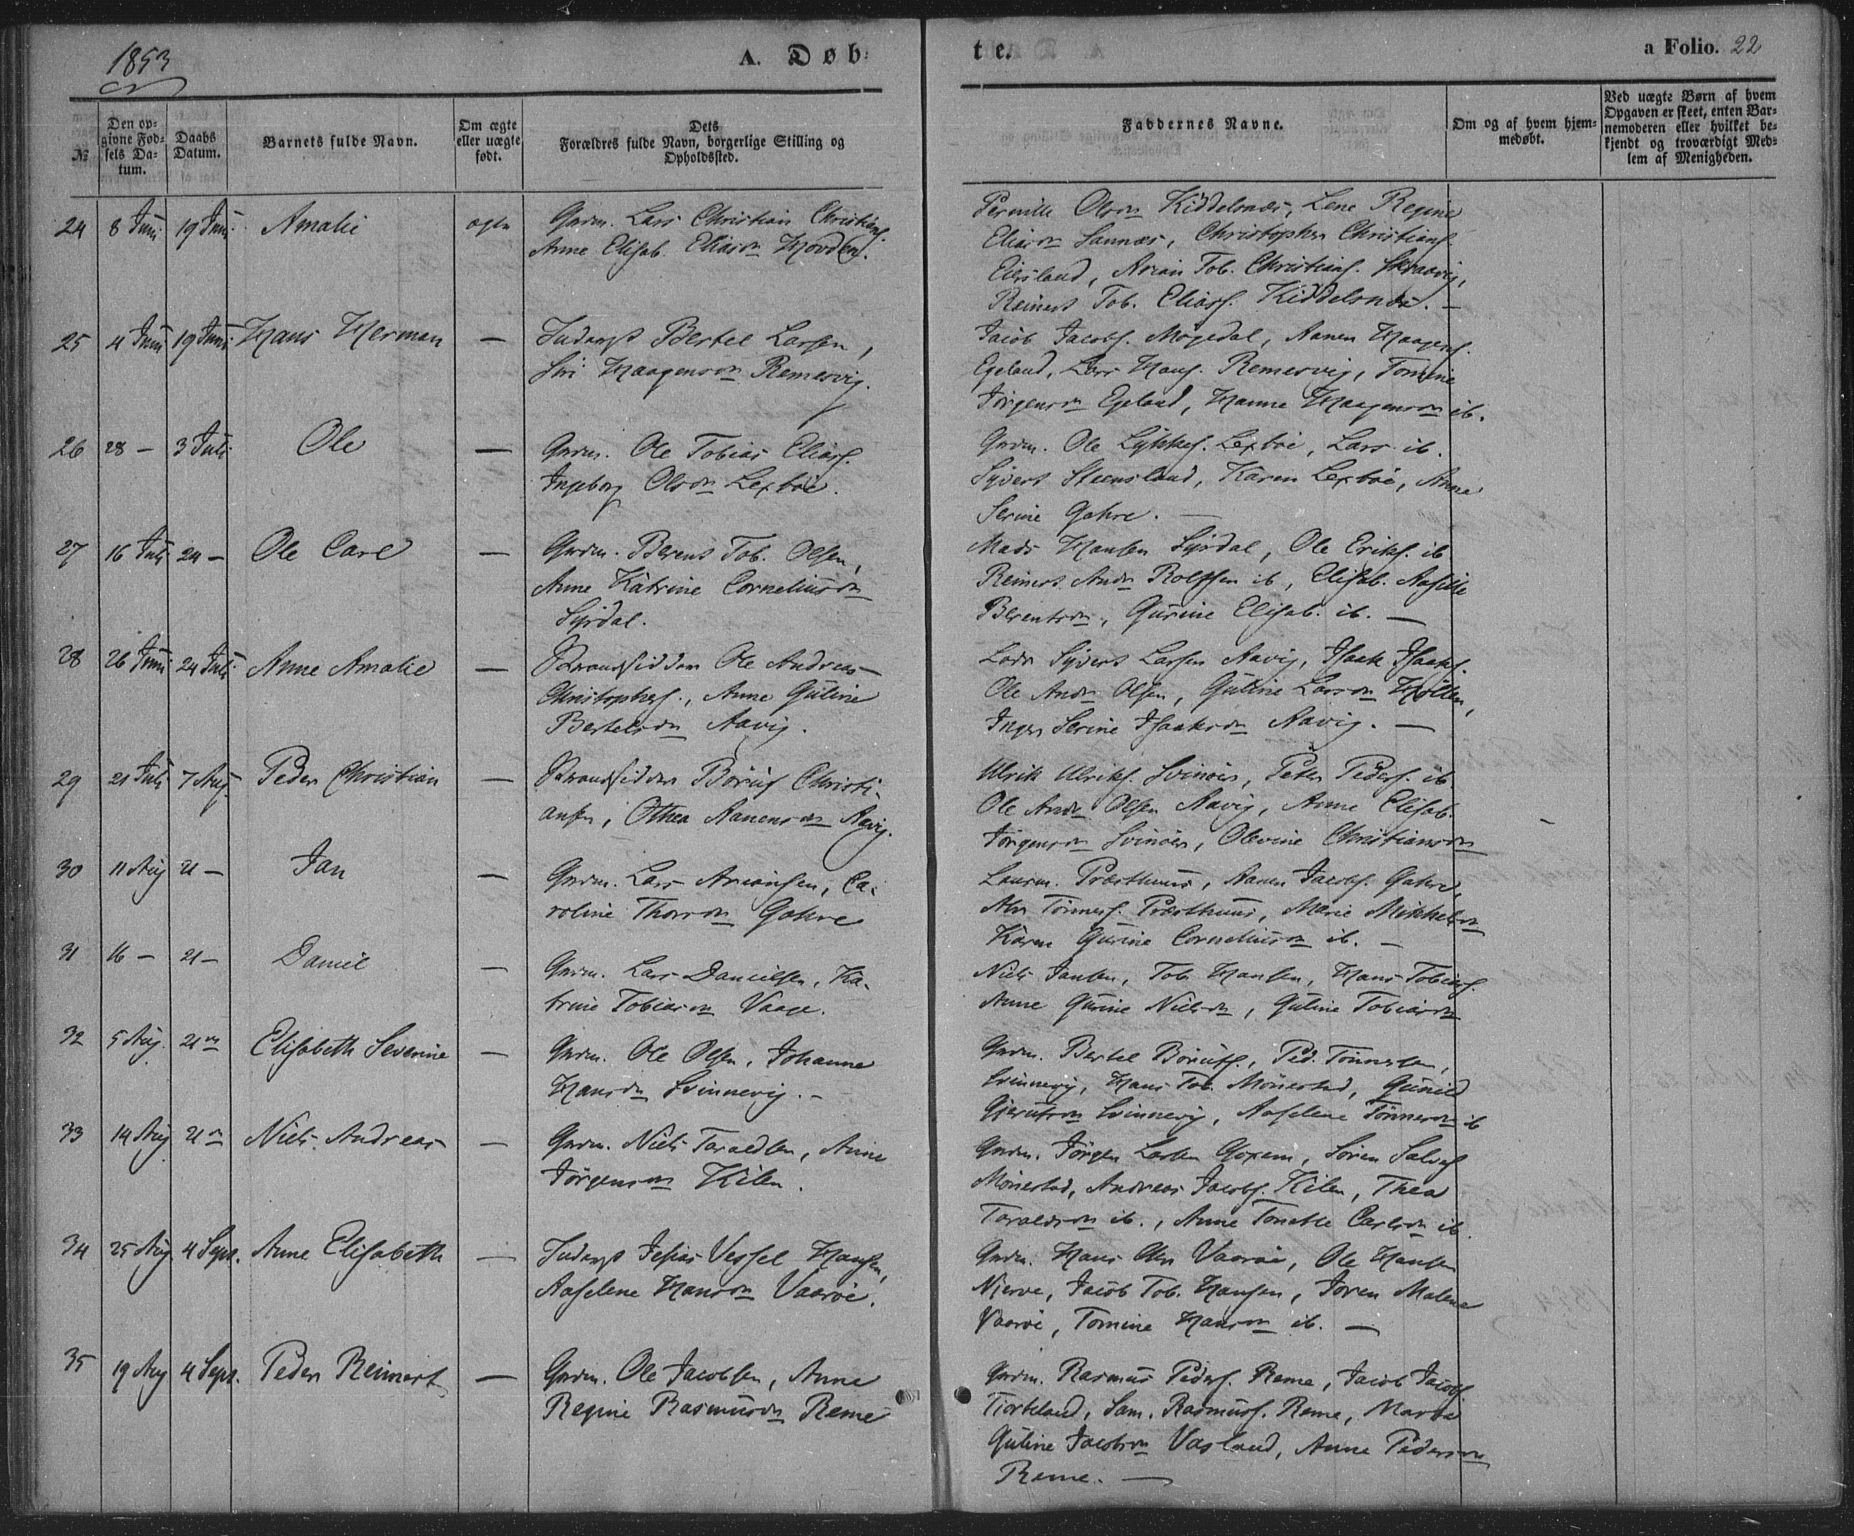 1853
A. Døb-
te.
a Folio. 22
№
Den op-
givne Fød-
sels Da-
tum.
Daabs
Datum.
Barnets fulde Navn.
Om ægte
eller uægte
født.
Dets
Forældres fulde Navn, borgerlige Stilling og
Opholdssted.
Faddernes Navne.
Om og af hvem hjem-
medøbt.
Ved uægte Børn af hvem
Opgaven er skeet, enten Bar-
nemoderen eller hvilket be-
kjendt og troværdigt Med-
lem af Menigheden.
24 8 Juni 19 Juni Amalie ægte Gmdm. Lars Christian Christians.
Anne Elisab. Eliasdn Hovden.
Pernille Olsdn Kiddelsnæs, Lene Regine
Eliasdn Sannæs, Christopher Christians.
Eiersland, Arian Tob. Christians. Skraavig,
Reinert Tob. Elias. Kiddelsnæs. —
25 4 Juni 19 Juni Hans Herman — Inderst Bertel Larsen,
Siri Haagensdn Remesvig.
Jacob Jacobs. Møgedal, Aanen Haagens.
Egeland, Lars Hans. Remesvig, Tomine
Jørgensdn Egeland, Hanne Haagensdn ib.
26 28 — 3 Juli Ole — Gmdm. Ole Tobias Elias.
Ingeborg Olsdn Lextøe.
Gmdm. Ole Lykkes. Lextøe, Lars ib.
Syvert Steensland, Karen Lextøe, Anne
Serine Gahre. —
27 16 Juli 24 — Ole Carl — Gmdm. Berent Tob. Olsen,
Anne Katrine Corneliusdn
Syrdal.
Mads Hansen Syrdal, Ole Eriks. ib
Reinert Andr. Rolfsen ib, Elisab. Aasille
Berentsdn, Gurine Elisab. ib. —
28 26 Juni 24 Juli Anne Amalie — Strandsidder Ole Andreas
Christophers., Anne Guline
Bertelsdn Aavig.
Lods Syvert Larsen Aavig, Isaak Isaaks.
Ole Andr. Olsen, Guline Larsdn Holten,
Inger Serine Isaaksdn Aavig. —
29 21 Juli 7 Aug. Peder Christian — Strandsidder Børuf Christi-
ansen, Othea Aanensdn Aavig.
Ulrik Ulriks. Svinøer, Peter Peders. ib
Ole Andr. Olsen Aavig, Anne Elisab.
Jørgensdn Svinøer, Olevine Christiansdn
30 11 Aug 21 — Jan — Gmdm. Lars Ariansen, Ca-
roline Thorsdn Gahre
Præsthuus, Aanen Jacobs. Gahre,
Tønnes. Præsthuus, Marie Mikkelsdn
Karen Gurine Corneliusdn ib. —
31 16 — 21 — Daniel — Gmdm. Lars Danielsen, Ka-
trine Tobiasdn Vaage.
Niels Jansen, Tob. Hansen, Hans Tobias.
Anne Gurine Nielsdn, Guline Tobiasdn
32 5 Aug. 21 Elisabeth Severine — Gmdm. Ole Olsen, Johanne
Hansdn Svinnevig. —
Gmdm. Bertel Børufs., Ped. Tønnesen,
Svinnevig, Hans Tob. Mønnestad, Gunild
Gjerufsdn Svinnevig, Aaselene Tønnesdn ib
33 14 Aug 21 Niels Andreas — Gmdm. Niels Taraldsen, Anne
Jørgensdn Kilen.
Gmdm. Jørgen Larsen, Søren Salves.
Mønnestad, Andreas Jacobs. Kilen, Thea
Taraldsdn ib., Anne Tonette Carlsdn ib.
34 25 Aug. 4 Sept. Anne Elisabeth — Inderst Jesias Vessel Hansen,
Aaselene Hansdn Vaarøe.
Gmdm. Hans Vaarøe, Ole Hansen
Njerve, Jacob Tob. Hansen, Joren Malene
Vaarøe, Tomine Hansdn ib. —
35 19 Aug 4 Sept. Peder Reinert — Gmdm. Ole Jacobsen, Anne
Regine Rasmusdn Reme
Gmdm. Rasmus Peders. Reme, Jacob Jacobs.
Tjorteland, Sam. Rasmuss. Reme, Marthe
Guline Jacobsdn Vasland, Anne Pedersdn
Reme. —